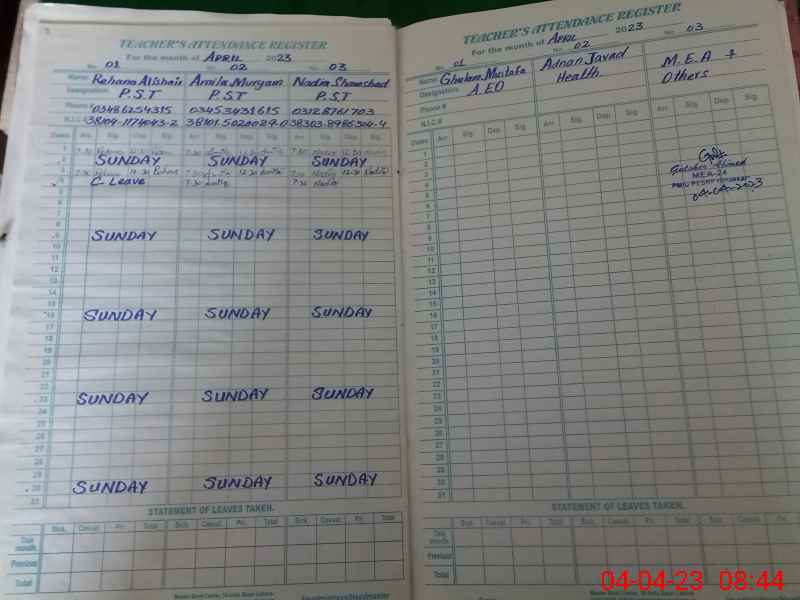 TEACHER'S ATTENDANCE REGISTER
For the month of APRIL 2023
No. 01 No. 02 No. 03
Name: Rehana Alshair Amila Muryam Nadia Shamshad
Designation: P.S.T P.S.T P.S.T
Phone # 03486254315 03453431615 03128761703
N.I.C # 38104-1174043-2 38101-5020029-0 38303-8986304-4
Dates Arr. Sig. Dep. Sig. Arr. Sig. Dep. Sig. Arr. Sig. Dep. Sig.
1
2 SUNDAY SUNDAY SUNDAY
3
4 C. Leave 7:30 7:30 Nadia
5
6
7
8
9 SUNDAY SUNDAY SUNDAY
10
11
12
13
14
15
16 SUNDAY SUNDAY SUNDAY
17
18
19
20
21
22
23 SUNDAY SUNDAY SUNDAY
24
25
26
27
28
29
30 SUNDAY SUNDAY SUNDAY
31
STATEMENT OF LEAVES TAKEN.
Sick. Casual. Pri. Total Sick. Casual. Pri. Total Sick. Casual. Pri. Total
This month.
Previous
Total
TEACHER'S ATTENDANCE REGISTER
For the month of APRIL 2023
No. 01 No. 02 No. 03
Name: Ghulam Mustafa Adnan Javad M.E.A +
Designation: A.EO Health. Others
Phone #
N.I.C #
Dates Arr. Sig. Dep. Sig. Arr. Sig. Dep. Sig. Arr. Sig. Dep. Sig.
1
2
3
4
5
6
7
8
9
10
11
12
13
14
15
16
17
18
19
20
21
22
23
24
25
26
27
28
29
30
31
MEA-24
04-04-2023
STATEMENT OF LEAVES TAKEN.
Sick. Casual. Pri. Total Sick. Casual. Pri. Total Sick. Casual. Pri. Total
This month.
Previous
Total
04-04-23 08:44